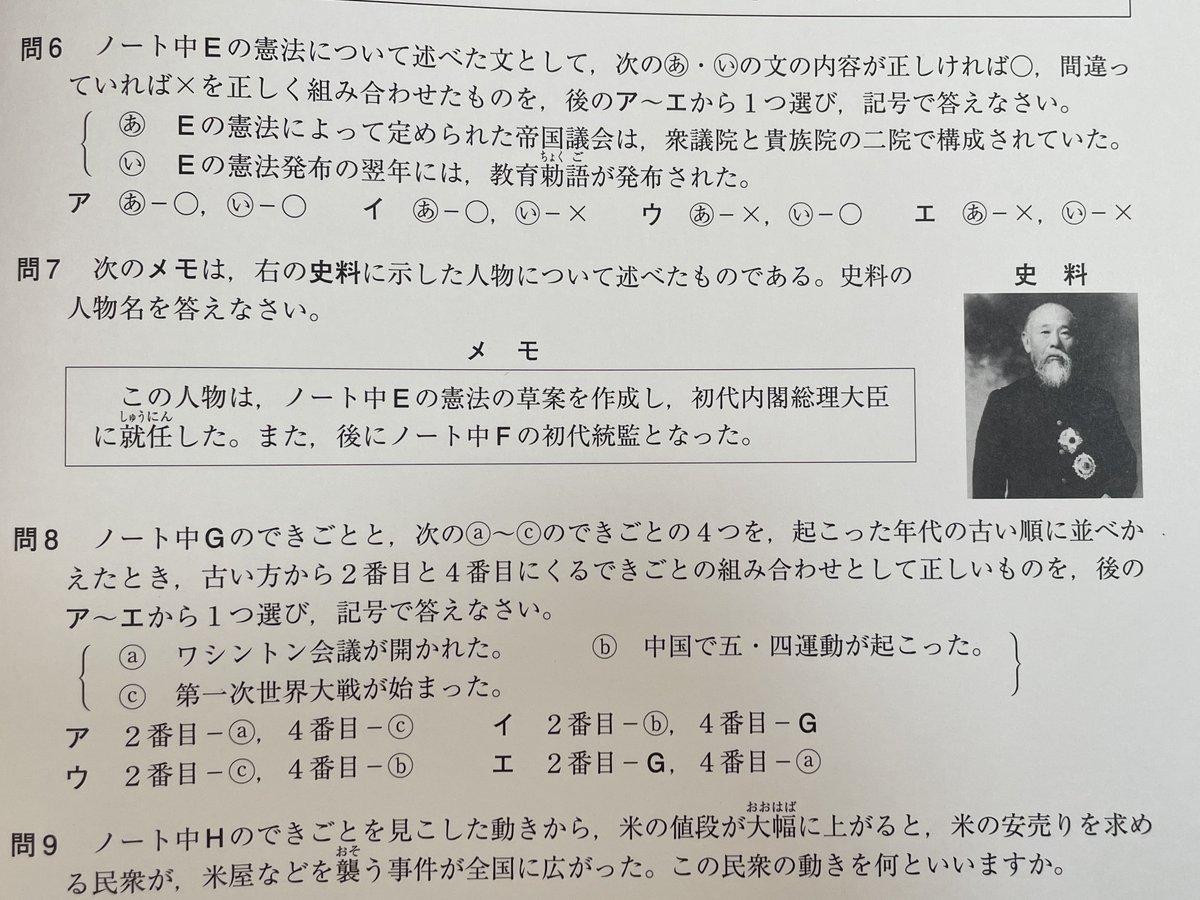 問6 ノート中Eの憲法について述べた文として，次のあ・いの文の内容が正しければ○，間違っ
ていれば×を正しく組み合わせたものを，後のア～エから1つ選び，記号で答えなさい。
あ Eの憲法によって定められた帝国議会は，衆議院と貴族院の二院で構成されていた。
ちょく ご
い Eの憲法発布の翌年には，教育勅語が発布された。
ア あ－○，い－○ イ あ－○，い－× ウ あ－×，い－○ エ あ－×，い－×
問7 次のメモは，右の史料に示した人物について述べたものである。史料の
人物名を答えなさい。
史 料
メ モ
この人物は，ノート中Eの憲法の草案を作成し，初代内閣総理大臣
しゅうにん
に就任した。また，後にノート中Fの初代統監となった。
問8 ノート中Gのできごとと，次のⓐ～ⓒのできごとの4つを，起こった年代の古い順に並べか
えたとき，古い方から2番目と4番目にくるできごとの組み合わせとして正しいものを，後の
ア～エから1つ選び，記号で答えなさい。
ⓐ ワシントン会議が開かれた。 ⓑ 中国で五・四運動が起こった。
ⓒ 第一次世界大戦が始まった。
ア 2番目－ⓐ，4番目－ⓒ イ 2番目－ⓑ，4番目－G
ウ 2番目－ⓒ，4番目－ⓑ エ 2番目－G，4番目－ⓐ
おおはば
問9 ノート中Hのできごとを見こした動きから，米の値段が大幅に上がると，米の安売りを求め
おそ
る民衆が，米屋などを襲う事件が全国に広がった。この民衆の動きを何といいますか。